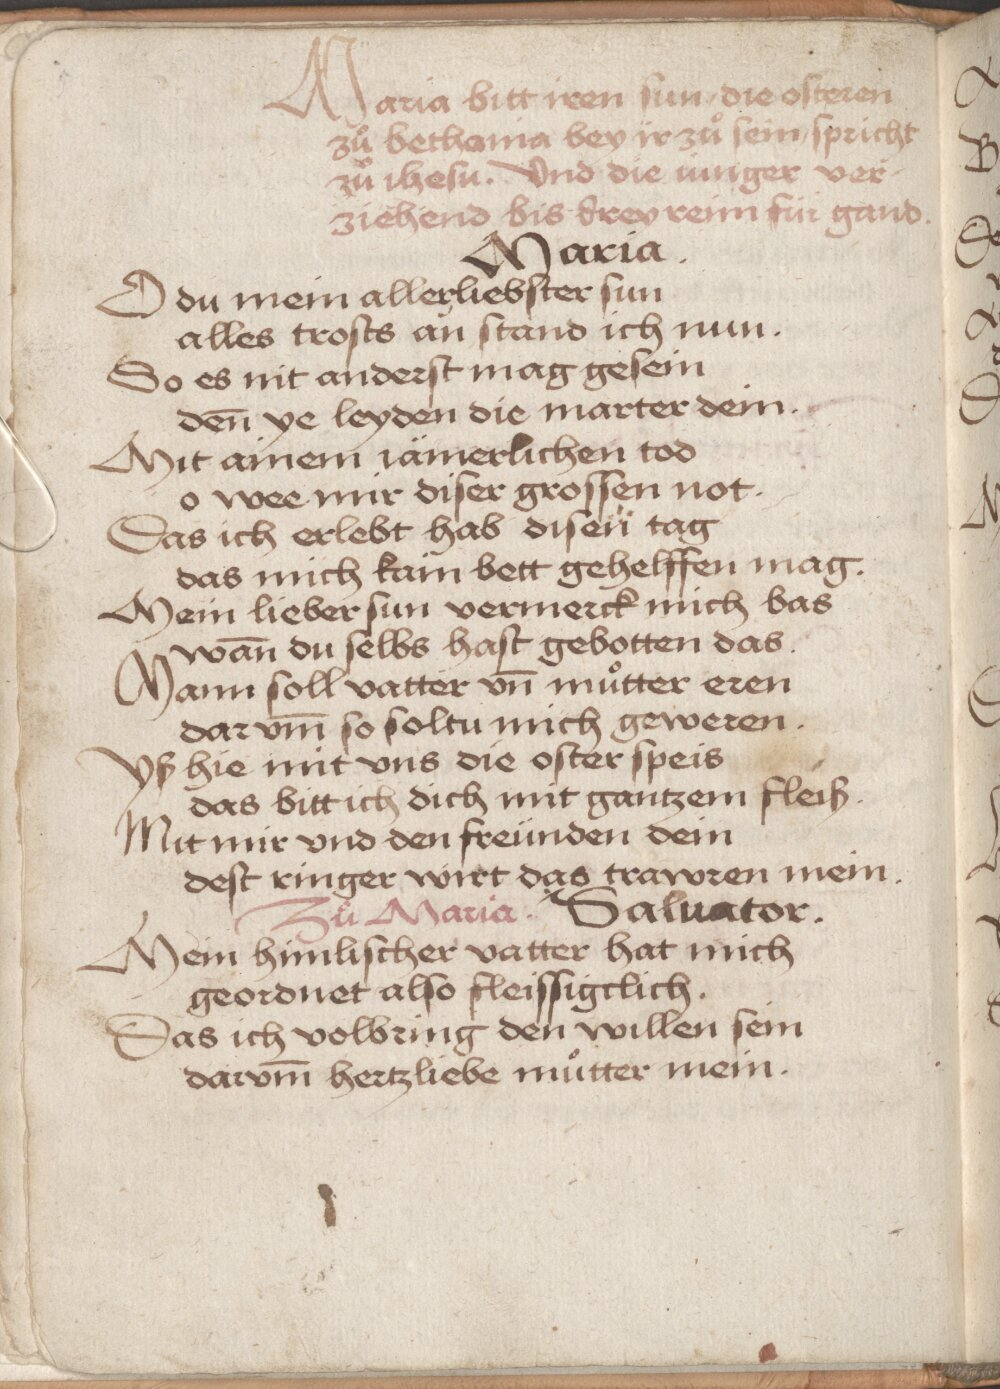 Maria bitt iren sun, die osteren
zuͦ bethania bey ir zuͦ sein, spricht
zuͦ ihesu. Vnd die iunger ver-
ziehend bis drey reim fúr gand.
Maria.
O du mein allerliebster sun
alles trosts an stand ich nun.
So es nit anderst mag gesein
deñ ye leyden die marter dein.
Mit ainem iämerlichen tod
o wee mir diser grossen not.
Das ich erlebt hab diseñ tag
das mich kain bett gehelffen mag.
Mein lieber sun vermerck mich bas
wañ du selbs hast gebotten das.
Mann soll vatter vñ muͦtter eren
darvm̄ so soltu mich geweren.
Yß hie mit vns die oster speis
das bitt ich dich mit gantzem fleiß.
Mit mir vnd den freünden dein
dest ringer wirt das trawren mein.
Zuͦ Maria. Saluator.
Mein himlischer vatter hat mich
geordnet also fleissigclich.
Das ich volbring den willen sein
darvm̄ hertzliebe muͦtter mein.